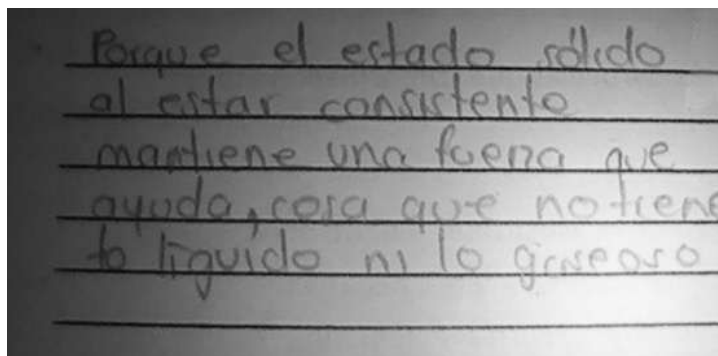 Porque el estado sólido
al estar consistente
mantiene una fuerza que
ayuda, cosa que no tiene
lo líquido ni lo gaseoso